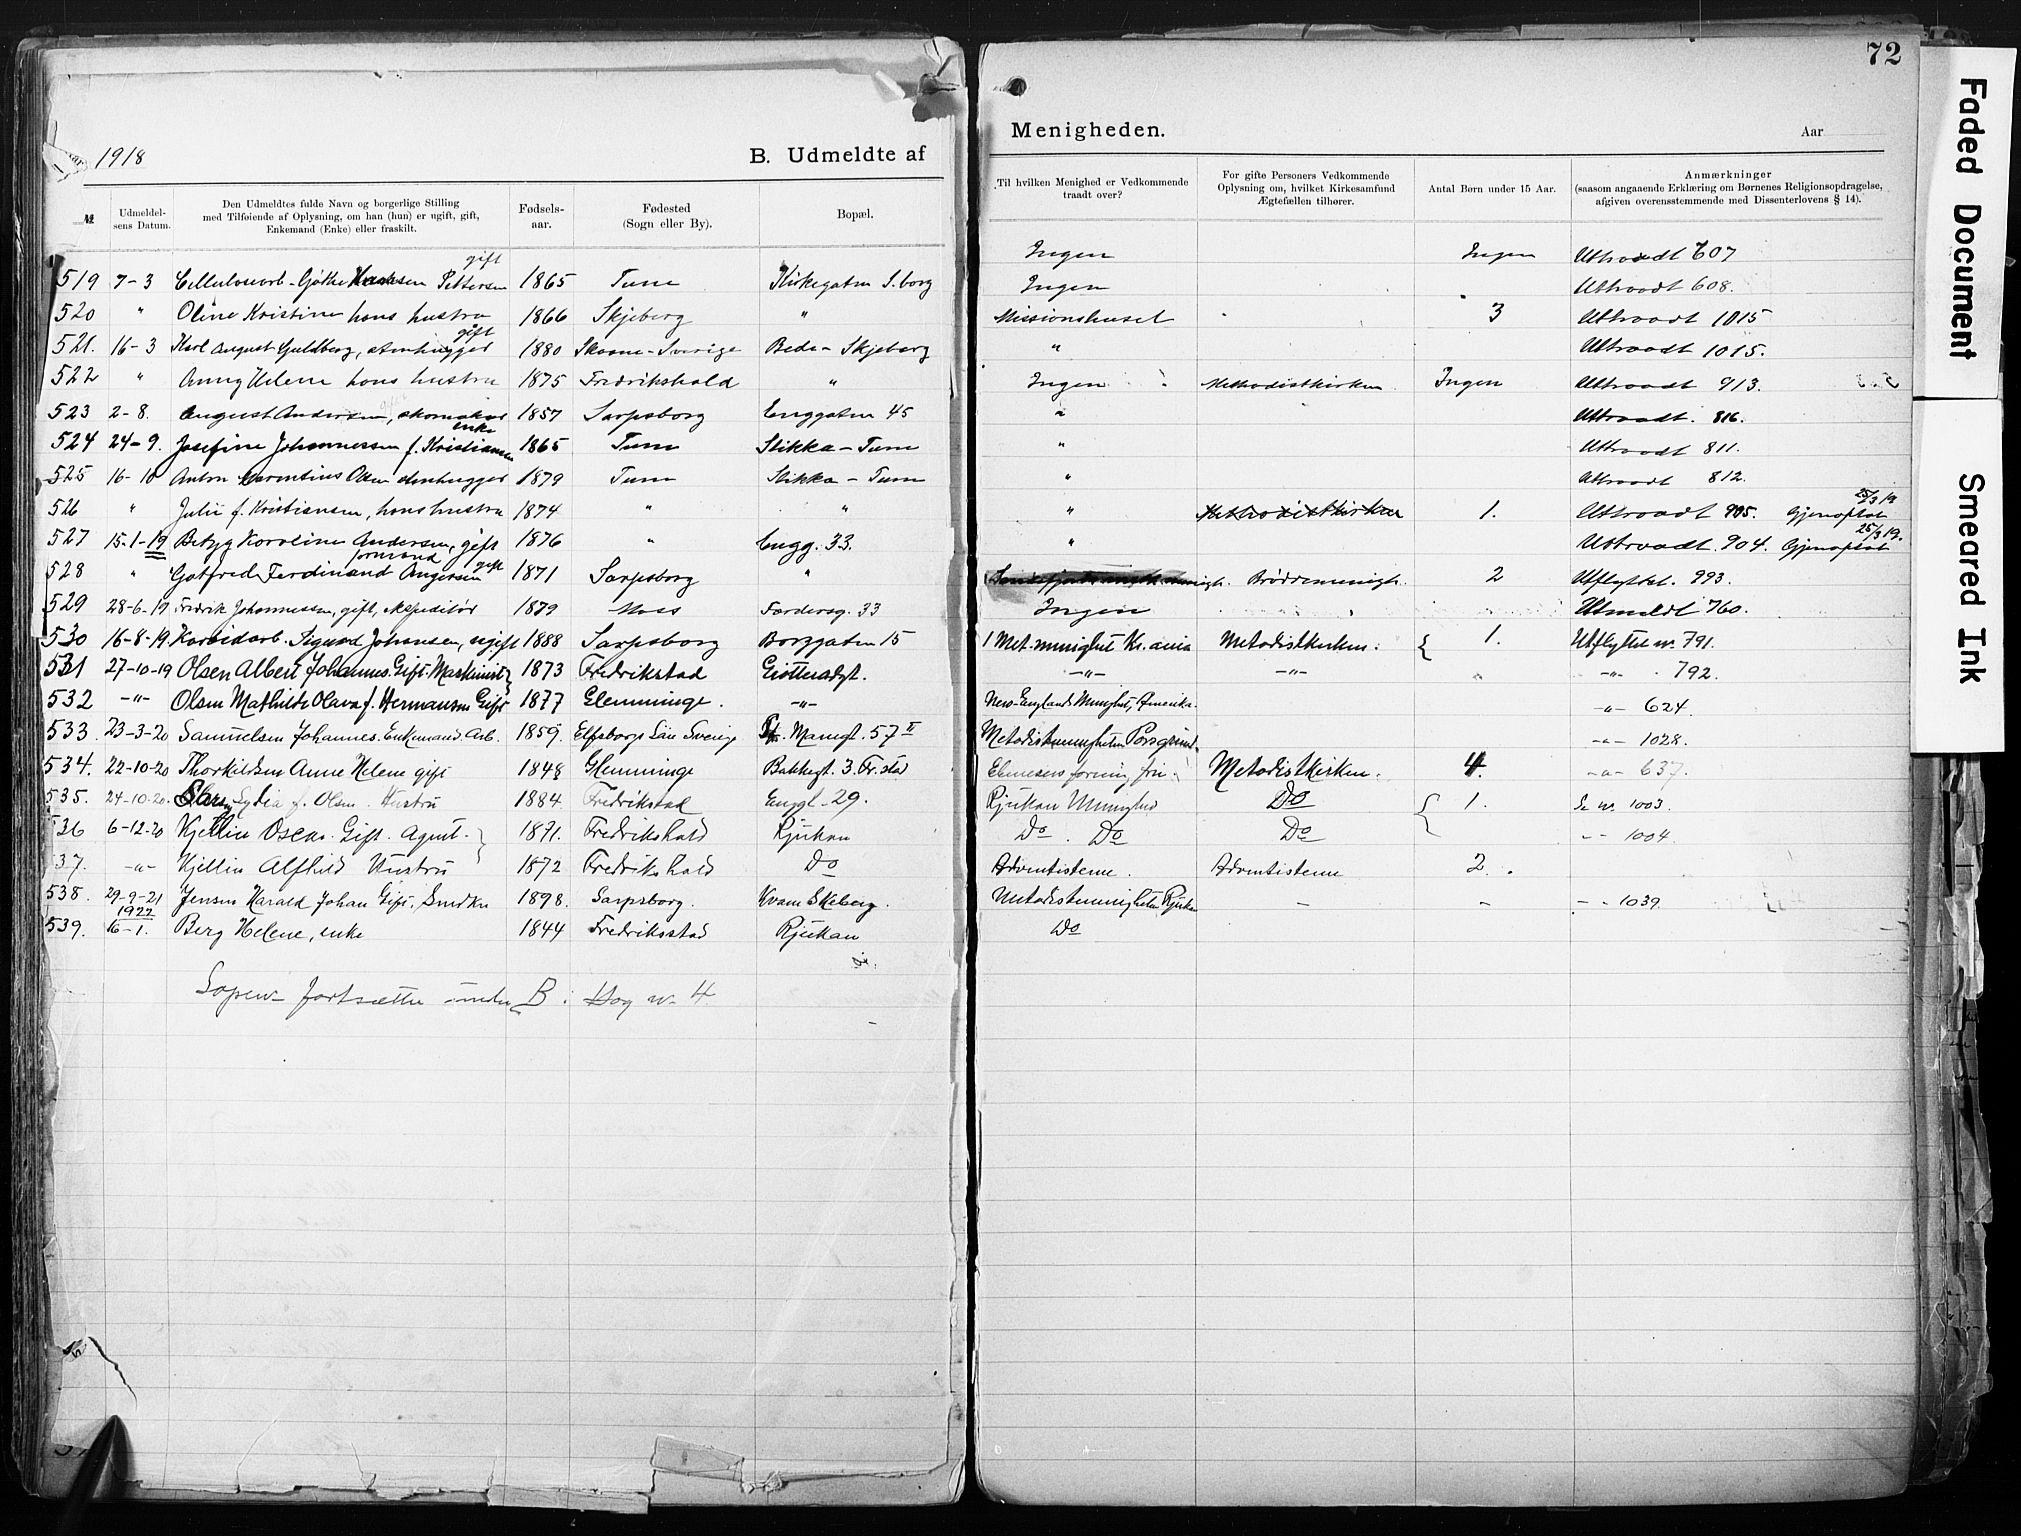 72
1918
B. Udmeldte af
Menigheden.
Aar
№
Udmeldelsens Datum.
Den Udmeldtes fulde Navn og borgerlige Stilling
med Tilføiende af Oplysning, om han (hun) er ugift, gift,
Enkemand (Enke) eller fraskilt.
Fødselsaar.
Fødested
(Sogn eller By).
Bopæl.
Til hvilken Menighed er Vedkommende
traadt over?
For gifte Personers Vedkommende
Oplysning om, hvilket Kirkesamfund
Ægtefællen tilhører.
Antal Børn under 15 Aar.
Anmærkninger
(saasom angaaende Erklæring om Børnenes Religionsopdragelse,
afgiven overensstemmende med Dissenterlovens § 14).
gift
519 7-3 Cellulosearb. Pettersen 1865 Tune Kirkegaten S.borg
520 " Oline Kristine hans hustru 1866 Skjeberg "
gift
521. 16-3 Karl August Guldberg, stenhugger 1880 Skaane-Sverige Bede- Skjeberg
522 " Anny Helene hans hustru 1875 Fredrikshald "
523 2-8. August Andersen, skomaker 1857 Sarpsborg Enggaten 45
enke
524 24-9. Josefine Johannessen f. Kristiansen 1865 Tune Stikka-Tune
525 16-10 Anton Olsen stenhugger 1879 Tune Stikka-Tune
526 " Julie f. Kristiansen, hans hustru 1874 " "
527 15-1-19 Betzy Karoline Andersen, gift 1876 " Engg. 33.
formand gift
528 " Gotfred Ferdinand Andersen 1871 Sarpsborg "
529 28-6-19 Fredrik Johannessen, gift, ekspeditør 1879 Moss 33
530 16-8-19 Karbidarb. Sigurd Johansen, ugift 1888 Sarpsborg Borggaten 15
531 27-10-19 Olsen Albert Johannes. Gift. Maskinist 1873 Fredrikstad
532 -"- Olsen Mathilde Olava f. Hermansen Gift 1877 Glemminge. -"-
533. 23-3-20 Samuelsen Johannes. Enkemand. Arb. 1859. Elfsborgs Län Sverige St. Mariegt. 57 II
534. 22-10-20 Thorkildsen Anne Helene gift 1848 Glemminge Bakkegt. 3. Fr.stad
535. 24-10-20. Lydia f. Olsen. Hustru 1884. Fredrikstad Enggt. 29.
536 6-12-20 Kjellin Oscar. Gift. Agent. 1871. Fredrikshald Rjukan
537. -"- Kjellin Alfhild Hustru 1872 Fredrikshald Do
538. 29-9-21 Jensen Harald Johan Gift. Snedker 1898. Sarpsborg. Kvam Skeberg.
1922
539. 16-1. Berg Helene, enke 1844 Fredriksstad Rjukan
fortsætter under B.
Ingen Ingen Utraadt 607
Ingen Utraadt 608.
Missionshuset 3 Utraadt 1015
" Utraadt 1015.
Ingen Methodistkirken Ingen Utraadt 913.
" Utraadt. 816.
" Utraadt 811.
" Utraadt 812.
25/3 19
" Methodistkirken 1. Utraadt 995. Gjenoptat
25/3 19.
" Utraadt. 904. Gjenoptat
Brødremenigh. 2 Utflyttet. 993.
Ingen Utmeldt 760.
1 Met. menighet Kr.ania Metodistkirken. 1. Utflyttet nr. 791.
-"- -"- " -"- 792.
New-Englands Menighet, Amerika. -"- 624.
Metodistmenigheten Porsgrund -"- 1028.
Ebenesers forening fri. Metodistkirken. 4. -"- 637.
Rjukan Menighed Do 1. Do nr. 1003.
Do. Do Do - - 1004.
Adventisterne. Adventisterne 2.
Metodistmenigheten, Rjukan - - - - 1039.
Do
Faded Document
Smeared Ink